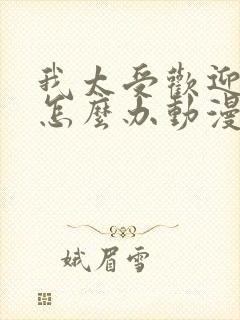 我太受歡迎
怎麼办動漫
娥眉雪